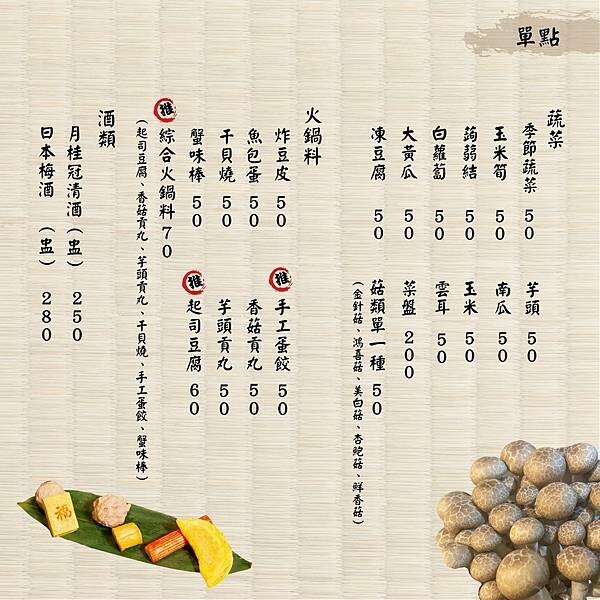 單點
蔬菜
季節蔬菜 50
玉米筍 50
蒟蒻結 50
白蘿蔔 50
大黃瓜 50
凍豆腐 50
芋頭 50
南瓜 50
玉米 50
雲耳 50
菜盤 200
菇類單一種 50
(金針菇、鴻喜菇、美白菇、杏鮑菇、鮮香菇)
火鍋料
炸豆皮 50
魚包蛋 50
干貝燒 50
蟹味棒 50
推 手工蛋餃 50
香菇貢丸 50
芋頭貢丸 50
推 起司豆腐 60
推 綜合火鍋料 70
(起司豆腐、香菇貢丸、芋頭貢丸、干貝燒、手工蛋餃、蟹味棒)
酒類
月桂冠清酒(盅) 250
日本梅酒 (盅) 280
福